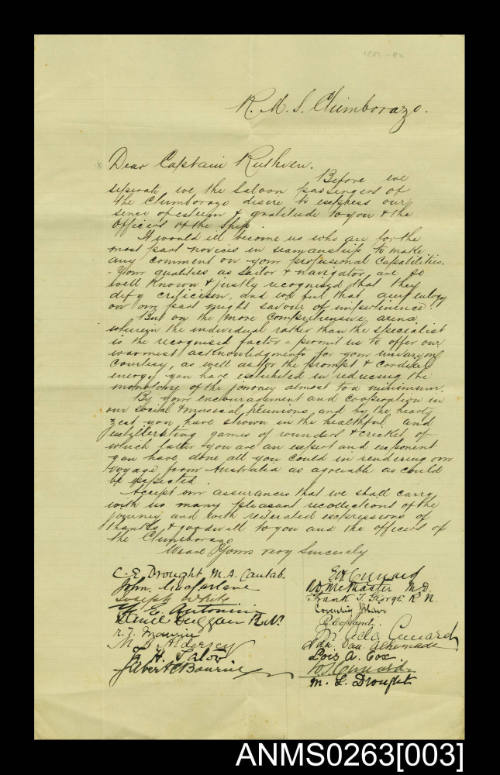 R. M. S. Chimborazo.
Dear Captain Ruthven.
Before we
separate, we the Saloon passengers of
the Chimborazo desire to express our
sense of esteem & gratitude to you & the
Officers of the Ship.
It would ill become us who are for the
most part novices in seamanship to make
any comment on your professional capabilities.
Your qualities as Sailor & Navigator are so
well known & justly recognised that they
defy criticism, and we feel that any eulogy
on our part might savour of impertinence.
But on the more comprehensive arena
wherein the individual rather than the specialist
is the recognised factor - permit us to offer our
warmest acknowledgments for your unvarying
courtesy, as well as for the prompt &
energy you have exhibited in reducing the
monotony of the journey almost to a minimum.
By your encouragement and cooperation in
our social & musical reunions, and by the hearty
zest you have shown in the healthful and
exhilarating games of rounders & cricket, of
which latter you are an expert and exponent
you have done all you could in rendering our
voyage from Australia as agreeable as could
be expected.
Accept our assurances that we shall carry
with us many pleasant recollections of the
journey and with reiterated expressions of
thanks & goodwill to you and the officers of
the Chimborazo
We are Yours very Sincerely
C. E. Drought M.A. Cantab.
John Macfarlane
Joseph White
E. Antonini
R.N.
R. J. Mowrie
M. D.
H. Tabor
Gilbert Bourne
E. Cunard
McMaster M.D.
Frank T. George R.N.
Ada Cunard
Van Alkemade
Lois A. Cox
M. L. Drought
ANMS0263[003]